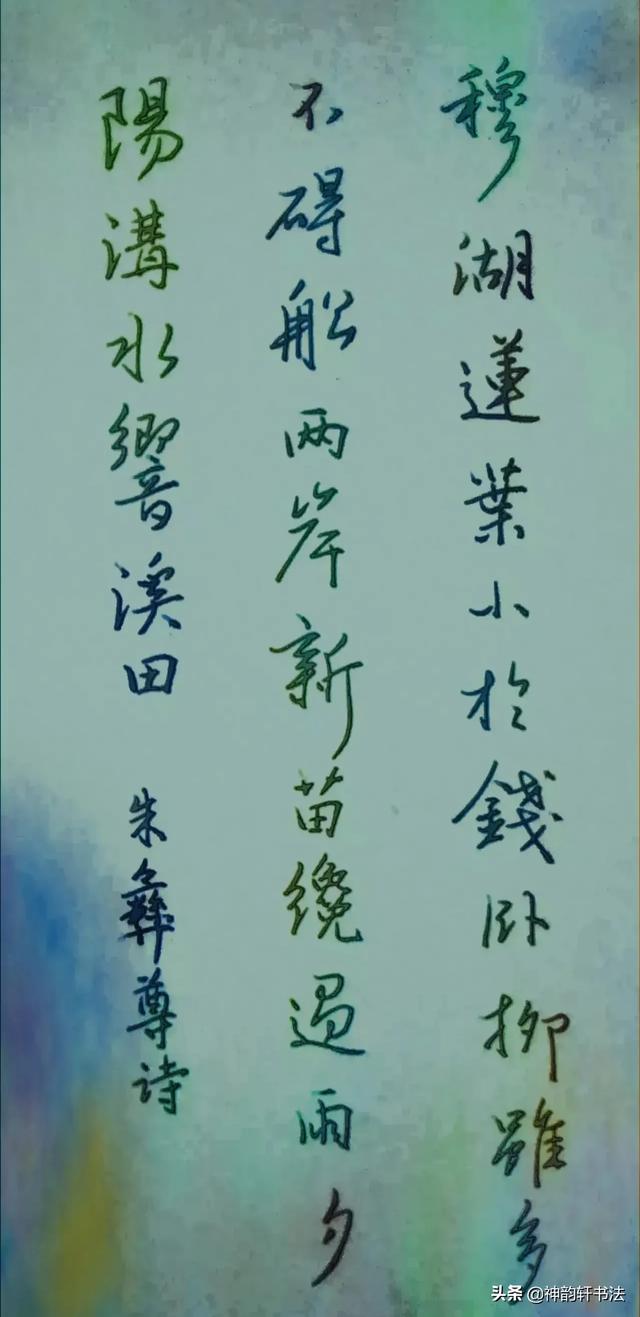 穆湖蓮葉小於錢卧柳雖多
不碍船两岸新苗纔過雨夕
陽溝水響溪田
朱彝尊诗
头条 @神韵轩书法